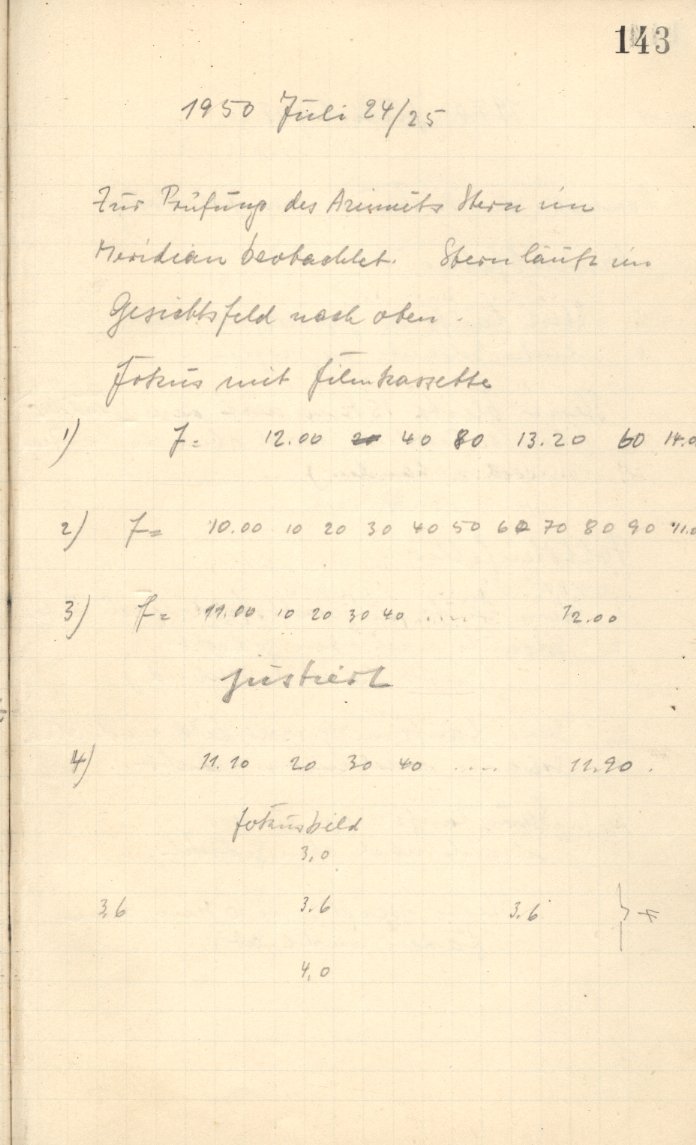 143
1950 Juli 24/25
Zur Prüfung des Azimuts Stern im
Meridian beobachtet. Stern läuft im
Gesichtsfeld nach oben.
Fokus mit Filmkassette
1) F= 12.00 20 40 80 13.20 60 14.0
2) F= 10.00 10 20 30 40 50 60 70 80 90 11.0
3) F= 11.00 10 20 30 40 ..... 12.00
justiert
4) 11.10 20 30 40 .... 11.90.
Fokusbild
3,0
3,6 3,6 3,6
4,0